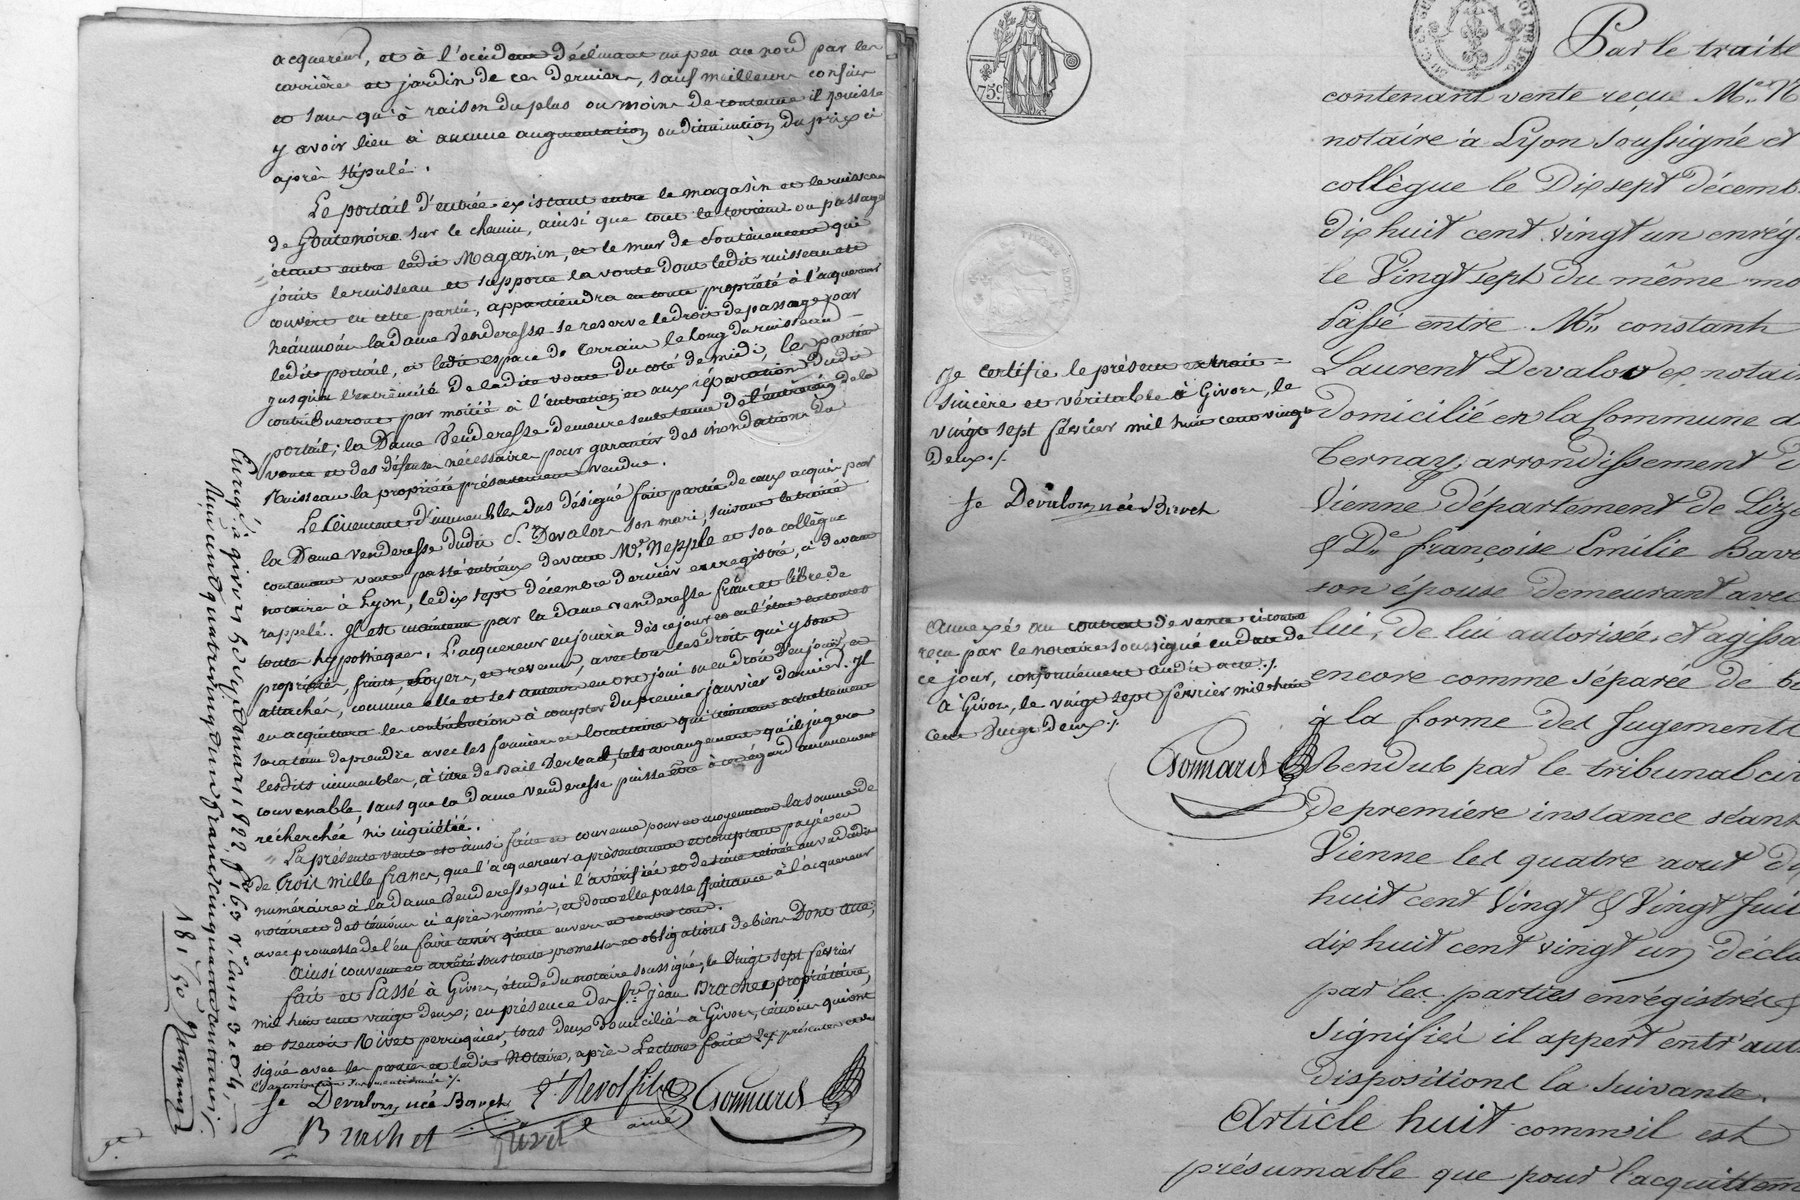 acquereur, et à l'occident déclinant un peu au nord par les
carrière et jardin de ces derniers, sauf meilleurs confins
et sans qu'à raison du plus ou moins de contenue il puisse
y avoir lieu à aucune augmentation ou diminution du prix ci
après stipulé.
Le portail d'entrée existant entre le magasin et le ruisseau
de Goutenoire sur le chemin, ainsi que tout le terrein ou passage
étant entre ledit Magazin, et le mur de soutènement qui
joint le ruisseau et supporte la voute dont ledit ruisseau est
couvert en cette partie, appartiendra en toute propriété à l'acquereur
néanmoins la dame Venderesse se reserve le droit de passage par
ledit portail, et ledit espace de terrain le long du ruisseau
jusqu'à l'extrêmité de ladite voute du coté de midi, les parties
contribueront par moitié à l'entretien et aux réparations dudit
portail; la Dame Venderesse demeure seule tenue de l'entretien de la
voute et des défenses nécessaires pour garantir des inondations du
Ruisseau la propriété présentement vendue.
Le tènement d'immeubles sus désigné fait partie de ceux acquis par
la Dame venderesse dudit S.r Devalors son mari, suivant le traité
contenant vente passé entreux devant M.e Nepple et son collègue
notaires à Lyon, le dix sept décembre dernier enregistré, ci devant
rappelé. Il est maintenu par la dame venderesse franc et libre de
toutes hypothèques. L'acquereur en jouira dès ce jour en toutes
propriétés, fruits, loyers, et revenus, avec tous les droits qui y sont
attachés, comme elle et ses auteurs en ont joui ou eu droit d'en jouir, et
en acquittera les contributions à compter du premier janvier dernier. Il
sera tenu de prendre avec les fermiers et locataires qui tiennent actuellement
lesdits immeubles, à titre de Bail verbal, tels arrangemens qu'il jugera
convenable, sans que la dame venderesse puisse être à cet égard aucunement
recherchée ni inquiétée.
La présente vente est ainsi faite et convenue pour et moyennant la somme de
de trois mille francs, que l'acquereur a présentement et comptant payée en
numéraire à la dame Venderesse qui l'a vérifiée et de suite retirée au vu dudit
notaire et des témoins ci après nommés, et dont elle passe quittance à l'acquereur
avec promesse de l'en faire tenir quitte envers et contre tous.
Ainsi convenu et arrêté sous toute promesses et obligations de biens Dont acte,
fait et Passé à Givors, étude du notaire soussigné, le vingt sept février
mil huit cent vingt deux; en présence des S.rs Jean Brachet propriétaire,
et Benoit Rivet perruquier, tous deux domiciliés à Givors, témoins qui ont
signé avec les parties et ledit Notaire, après Lecture faite des présentes et de
fe Devalors, née Bavet
Brachet
Rivet
ainé
Gonnard
Enregé à givors le 28 février 1822 f.o 163 r.o Cases 3 et 4,
Reçu cent quatre vingt un francs cinquante centimes,
Je certifie le présent extrait
sincère et véritable à Givors, le
vingt sept février mil huit cent vingt
Deux ./.
fe Devalors née Bavet
Annexé au contrat de vente ci contre
reçu par le notaire soussigné en date de
ce jour, conformément audit acte ./.
à Givors, le vingt sept février mil huit
cent vingt deux ./.
Gonnard
75c
Par le traité
contenant vente reçue M.e N
notaire à Lyon soussigné et
collègue le Dix sept décemb
dix huit cent vingt un enrég
le Vingt sept du même mo
Passé entre M.r constant
Laurent Devalors ex notair
Domicilié en la Commune d
Ternay, arrondissement d
Vienne département de L'ize
& D.e françoise Emilie Bave
son épouse demeurant avec
lui, de lui autorisée, et agissa
encore comme séparée de bi
à la forme des Jugements
Rendus par le tribunal civ
De première instance séant
Vienne les quatre aout di
huit cent Vingt & Vingt Juil
dix huit cent vingt un décla
par les parties enrégistrés &
signifiés il appert entr'aut
Dispositions la suivante.
Article huit comme il est
présumable que pour l'acquittem